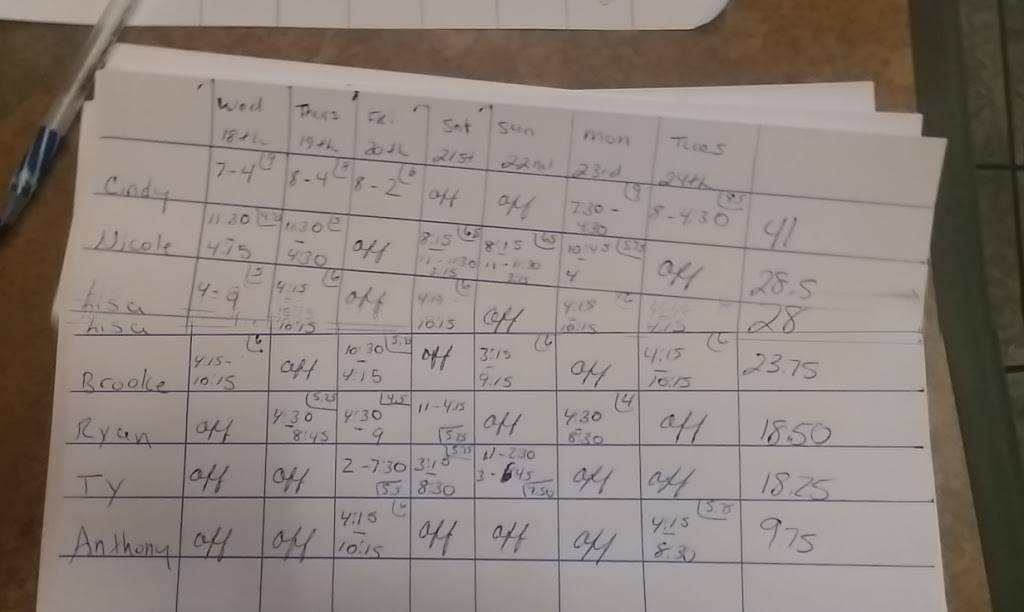 Wed Thurs Fri Sat Sun Mon Tues
18th 19th 20th 21st 22nd 23rd 24th
Cindy 7-4 9 8-4 8 8-2 6 off off 7:30-4:30 9 8-4:30 8.5 41
Nicole 11:30 4:15 11:30-4:30 5 off 8:15 6.5 11-11:30 8:15 6.5 11-11:30 10:45 5.25 4 off 28.5
Lisa 4-9 5 4:15 6 off 4:15 6 off 4:15
Lisa 10:15 10:15 10:15 28
Brooke 4:15-10:15 6 off 10:30-4:15 off 3:15-9:15 6 off 4:15-10:15 23.75
Ryan off 4:30-8:45 5.25 4:30-9 4.5 11-4:15 5.25 off 4:30 4 off 18.50
Ty off off 2-7:30 5.5 3:15-8:30 5.25 11-2:30 3-6:45 7.50 off off 18.25
Anthony off off 4:15-10:15 off off off 4:15-8:30 975